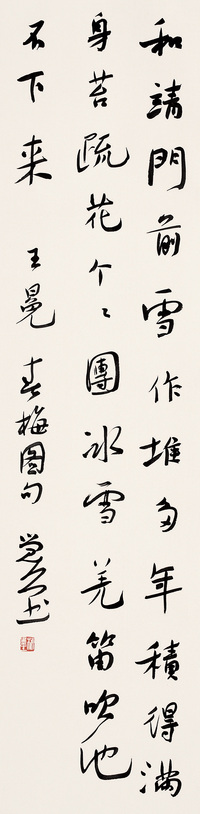 和靖門前雪作堆多年積得滿
身苔疏花个々團冰雪羌笛吹他
不下来 王冕 素梅图句 书